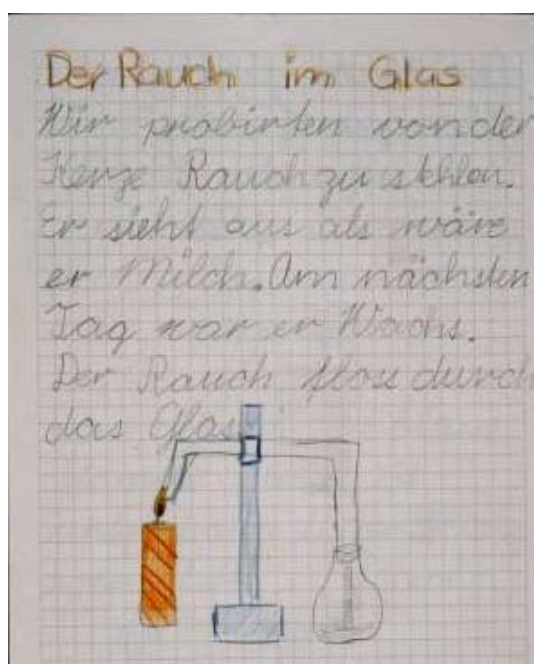 Der Rauch im Glas
Wir probirten von der
Kerze Rauch zu stehlen.
Er sieht aus als wäre
er Milch. Am nächsten
Tag war er Wachs.
Der Rauch floss durch
das Glas.